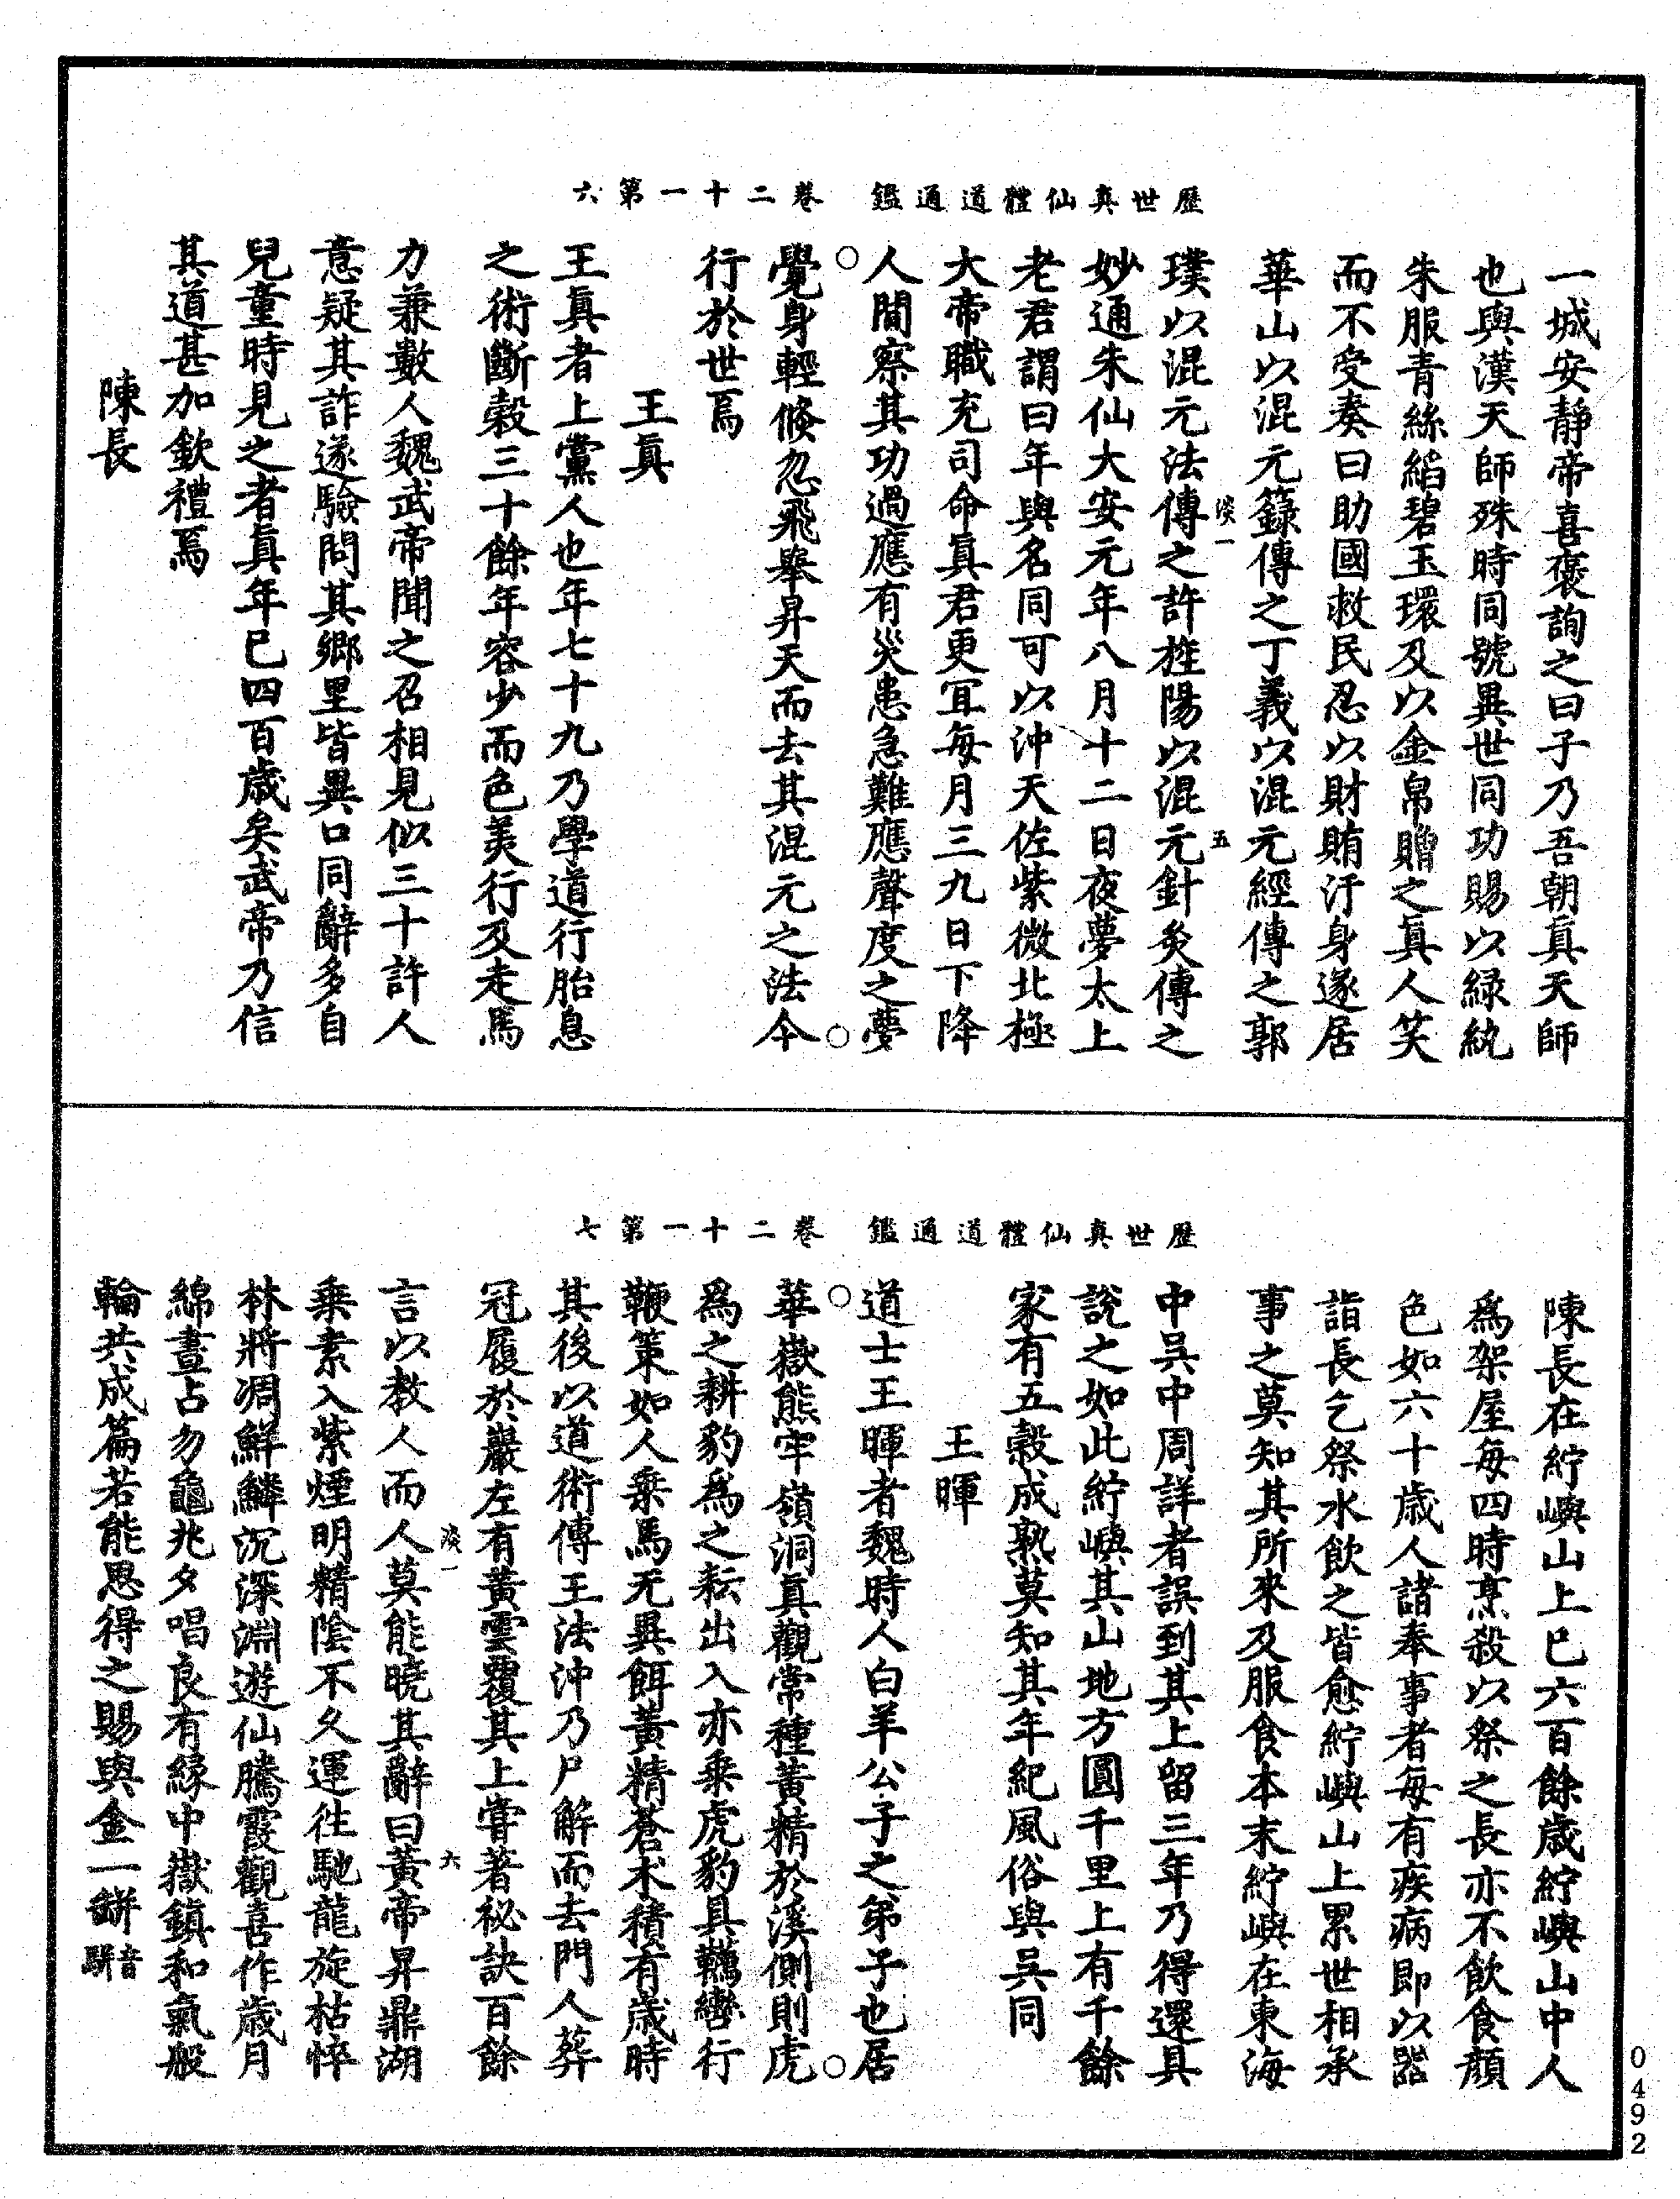 歷世真仙體道通鑑　卷二十一第六
一城安靜帝喜褒詢之曰子乃吾朝眞天師
也與漢天師殊時同號異世同功賜以緑紈
朱服青絲縚碧玉環及以金帛贈之眞人笑
而不受奏曰助國救民忍以財賄汙身遂居
華山以混元籙傳之丁義以混元經傳之郭
璞以混元法傳之許旌陽以混元針灸傳之
淡一　五
妙通朱仙大安元年八月十二日夜夢太上
老君謂曰年與名同可以沖天佐紫微北極
大帝職充司命眞君更冝每月三九日下降
人間察其功過應有災患急難應聲度之夢
覺身輕倏忽飛舉昇天而去其混元之法今
行於世焉
王眞
王眞者上黨人也年七十九乃學道行胎息
之術斷穀三十餘年容少而色美行及走馬
力兼數人魏武帝聞之召相見似三十許人
意疑其詐遂驗問其鄉里皆異口同辭多自
兒童時見之者眞年已四百歲矣武帝乃信
其道甚加欽禮焉
陳長
歷世真仙體道通鑑　卷二十一第七
陳長在紵嶼山上已六百餘歲紵嶼山中人
爲架屋每四時烹殺以祭之長亦不飲食顔
色如六十歲人諸奉事者每有疾病即以器
詣長乞祭水飲之皆愈紵嶼山上累世相承
事之莫知其所來及服食本末紵嶼在東海
中吳中周詳者誤到其上留三年乃得還具
說之如此紵嶼其山地方圓千里上有千餘
家有五穀成熟莫知其年紀風俗與吳同
王暉
道士王暉者魏時人白羊公子之弟子也居
華嶽熊牢嶺洞眞觀常種黃精於溪側則虎
爲之耕豹爲之耘出入亦乗虎豹具韉轡行
鞭策如人乗馬无異餌黃精蒼术積有歲時
其後以道術傳王法沖乃尸解而去門人葬
冠履於巖左有黃雲覆其上嘗著祕訣百餘
言以教人而人莫能曉其辭曰黃帝昇鼎湖
淡一　六
乗素入紫煙明精陰不久運往馳龍旋枯悴
林將凋鮮鱗沉深淵遊仙騰霞觀喜作歲月
綿晝占勿龜兆夕唱良有緣中嶽鎮和氣般
輪共成篇若能思得之賜與金一鉼音駢
0492